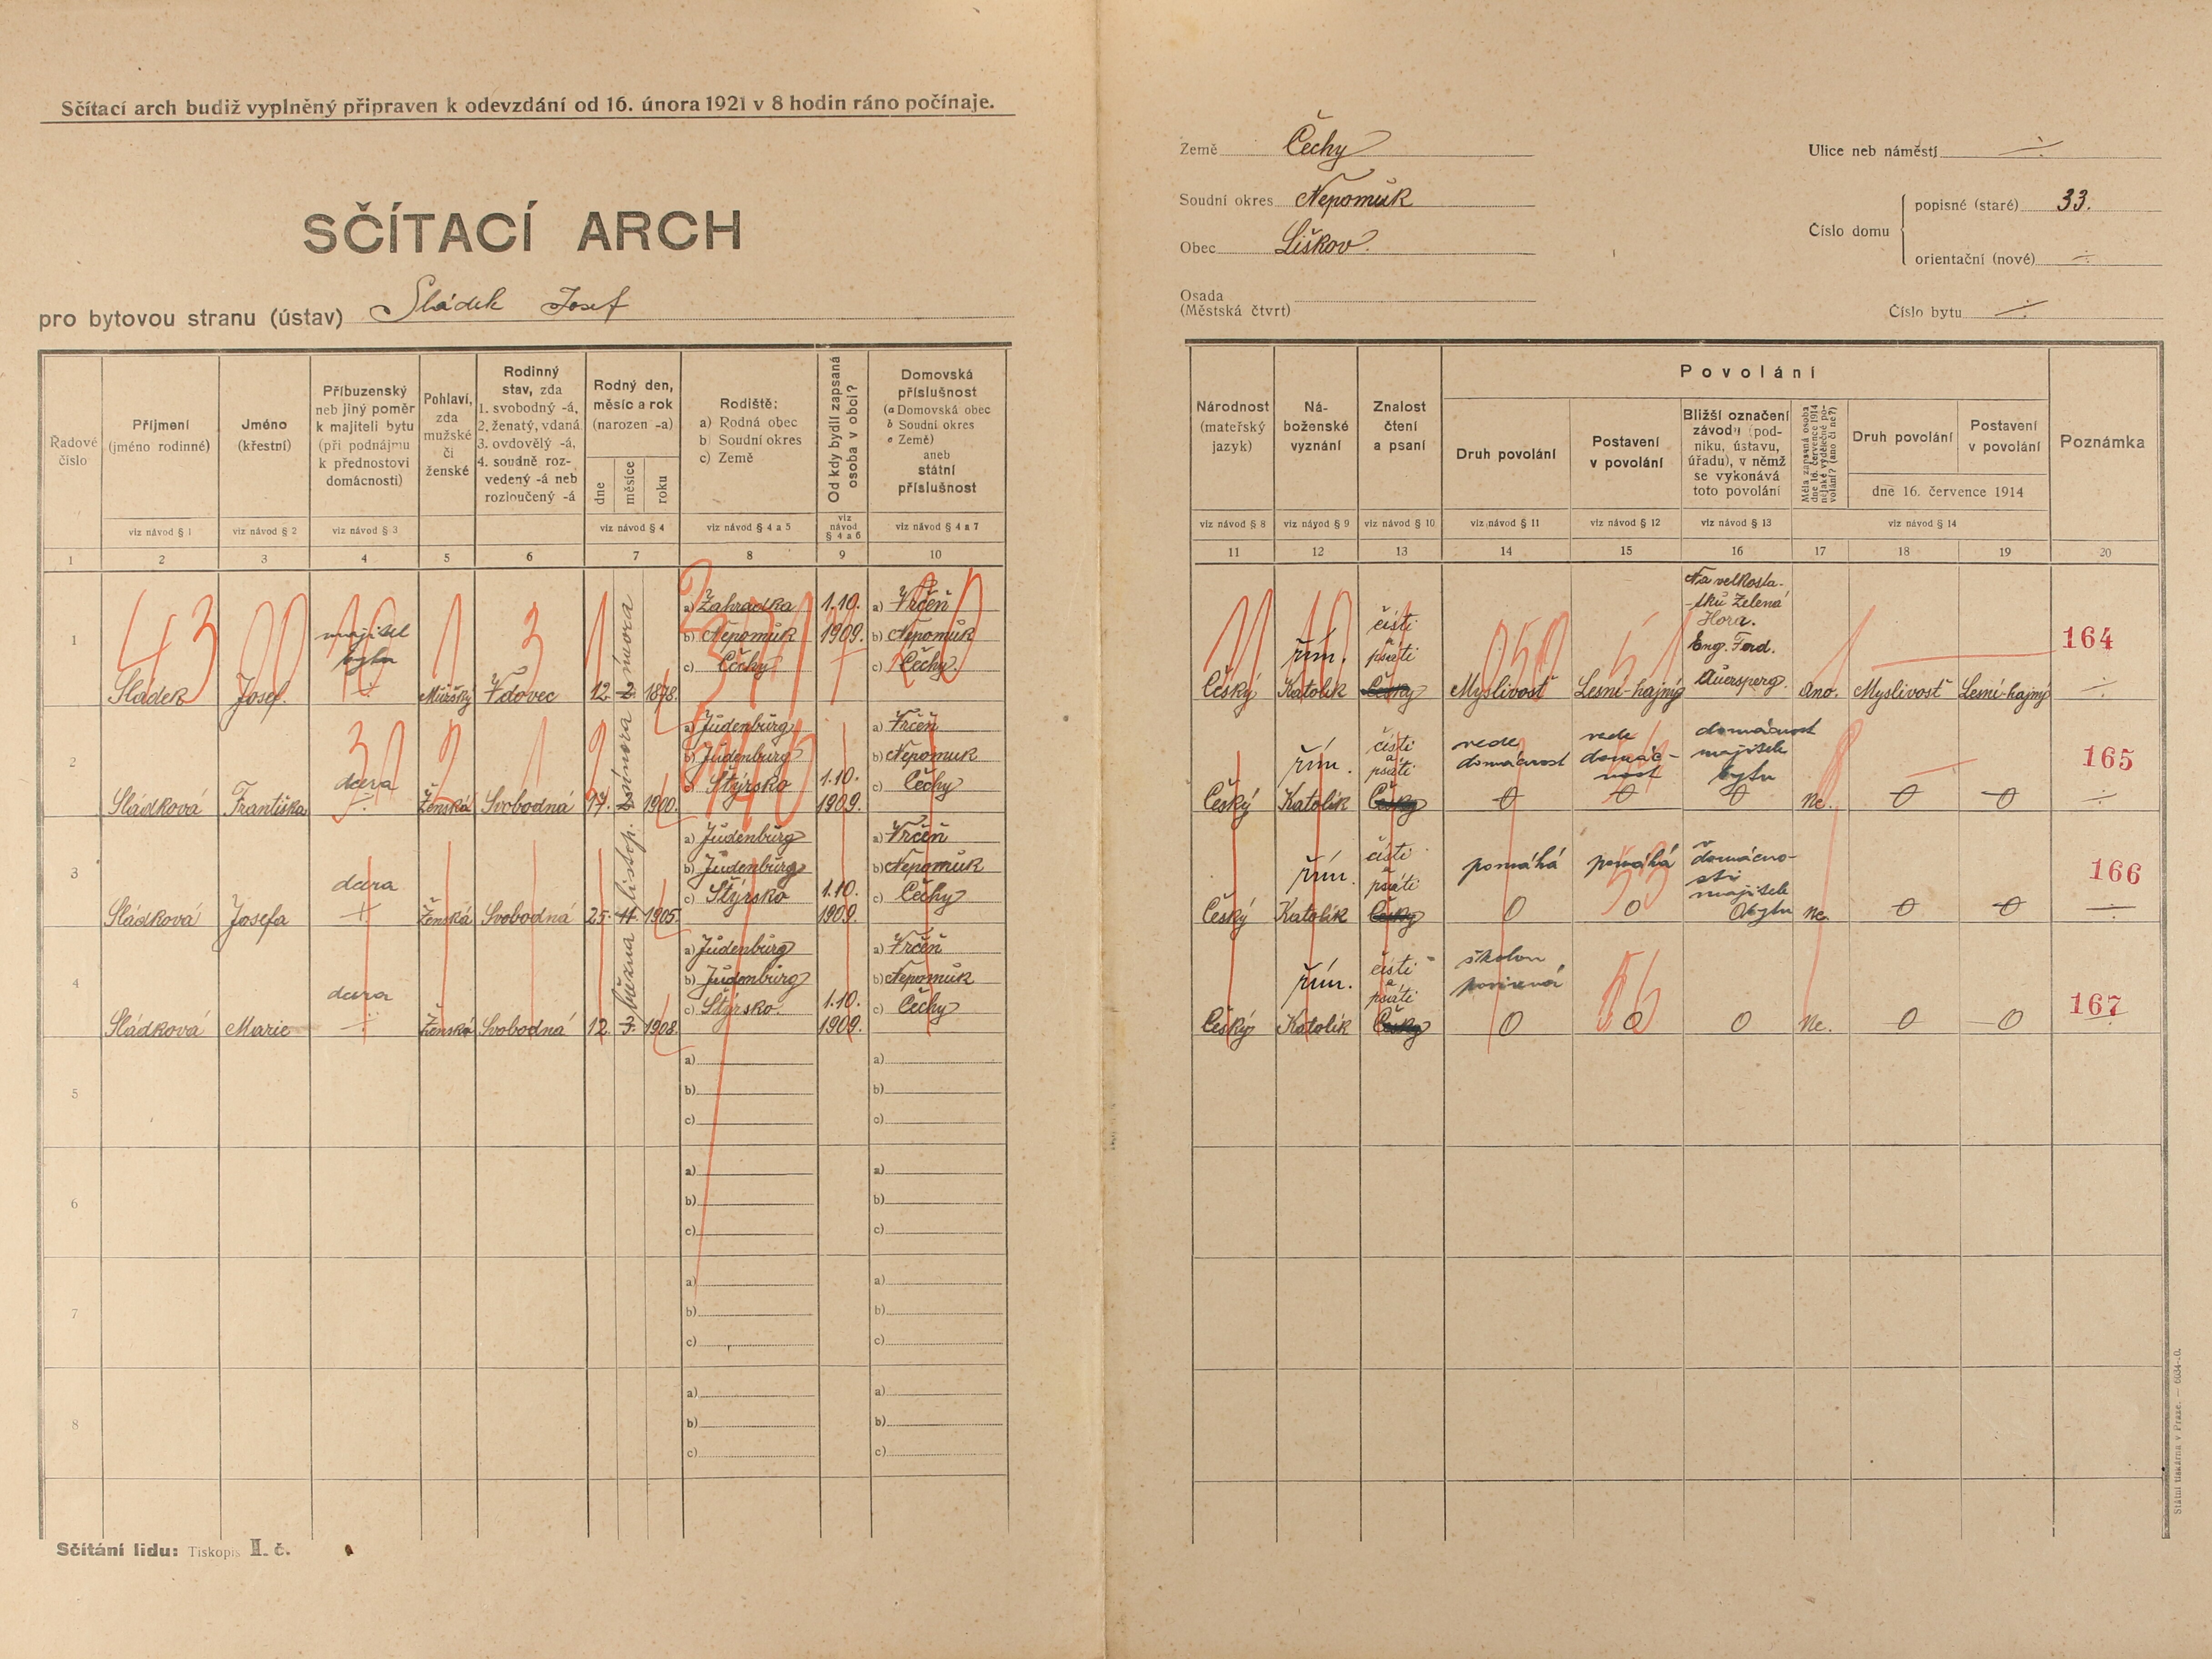 Sčítací arch budiž vyplněný připraven k odevzdání od 16. února 1921 v 8 hodin ráno počínaje.
SČÍTACÍ ARCH
pro bytovou stranu (ústav) Sládek Josef
Země Čechy
Soudní okres Nepomuk
Obec Liškov.
Osada
(Městská čtvrt)
Ulice neb náměstí ÷
Číslo domu
popisné (staré) 33.
orientační (nové) ÷
Číslo bytu ÷
Řadové
číslo
Příjmení
(jméno rodinné)
viz návod § 1
Jméno
(křestní)
viz návod § 2
Příbuzenský
neb jiný poměr
k majiteli bytu
(při podnájmu
k přednostovi
domácnosti)
viz návod § 3
Pohlaví,
zda
mužské
či
ženské
Rodinný
stav, zda
1. svobodný -á,
2. ženatý, vdaná
3. ovdovělý -á,
4. soudně roz-
vedený -á neb
rozloučený -á
Rodný den,
měsíc a rok
(narozen -a)
dne
měsíce
roku
viz návod § 4
Rodiště:
a) Rodná obec
b) Soudní okres
c) Země
viz návod § 4 a 5
Od kdy bydlí zapsaná
osoba v obci?
viz
návod
§ 4 a 6
Domovská
příslušnost
(a Domovská obec
b Soudní okres
c Země)
aneb
státní
příslušnost
viz návod § 4 a 7
Národnost
(mateřský
jazyk)
viz návod § 8
Ná-
boženské
vyznání
viz návod § 9
Znalost
čtení
a psaní
viz návod § 10
Povolání
Druh povolání
viz návod § 11
Postavení
v povolání
viz návod § 12
Bližší označení
závodu (pod-
niku, ústavu,
úřadu), v němž
se vykonává
toto povolání
viz návod § 13
Měla zapsaná osoba
dne 16. července 1914
nějaké výdělečné po-
volání? (ano či ne?)
Druh povolání
Postavení
v povolání
dne 16. července 1914
viz návod § 14
Poznámka
1 2 3 4 5 6 7 8 9 10
11 12 13 14 15 16 17 18 19 20
1
Sládek
Josef.
majitel
bytu
÷
Mužský
Vdovec
12. 2. února 1878.
a) Zahradka
b) Nepomuk
c) Čechy
1.10.
1909.
a) Vrčeň
b) Nepomuk
c) Čechy
Český
řím.
Katolík
čísti
a
psáti
Česky
Myslivost
Lesní-hajný
Na velkosta-
-tku Zelená
Hora.
Eng. Ferd.
Auersperg.
Ano.
Myslivost
Lesní-hajný
164
÷
2
Sládková
Františka
dcera
÷
Ženská
Svobodná
17. 2. února 1900.
a) Judenburg
b) Judenburg
c) Štýrsko
1.10.
1909.
a) Vrčeň
b) Nepomuk
c) Čechy
Český
řím.
Katolík
čísti
a
psáti
Česky
vede
domácnost
0
vede
domác-
nost
0
domácnost
majitele
bytu
0
Ne.
0
0
165
÷
3
Sládková
Josefa
dcera
÷
Ženská
Svobodná
25. 11. listop. 1905.
a) Judenburg
b) Judenburg
c) Štýrsko
1.10.
1909.
a) Vrčeň
b) Nepomuk
c) Čechy
Český
řím.
Katolík
čísti
a
psáti
Česky
pomáhá
0
pomáhá
0
v
domácno-
sti
majitele
bytu
Ne.
0
0
166
÷
4
Sládková
Marie
dcera
÷
Ženská
Svobodná
12. 3. března 1908.
a) Judenburg
b) Judenburg
c) Štýrsko.
1.10.
1909.
a) Vrčeň
b) Nepomuk
c) Čechy
Český
řím.
Katolík
čísti
a
psáti
Česky
školou
povinná
0
0
0
Ne.
0
0
167
5
a) a)
b) b)
c) c)
6
a) a)
b) b)
c) c)
7
a) a)
b) b)
c) c)
8
a) a)
b) b)
c) c)
Sčítání lidu: Tiskopis II. č.